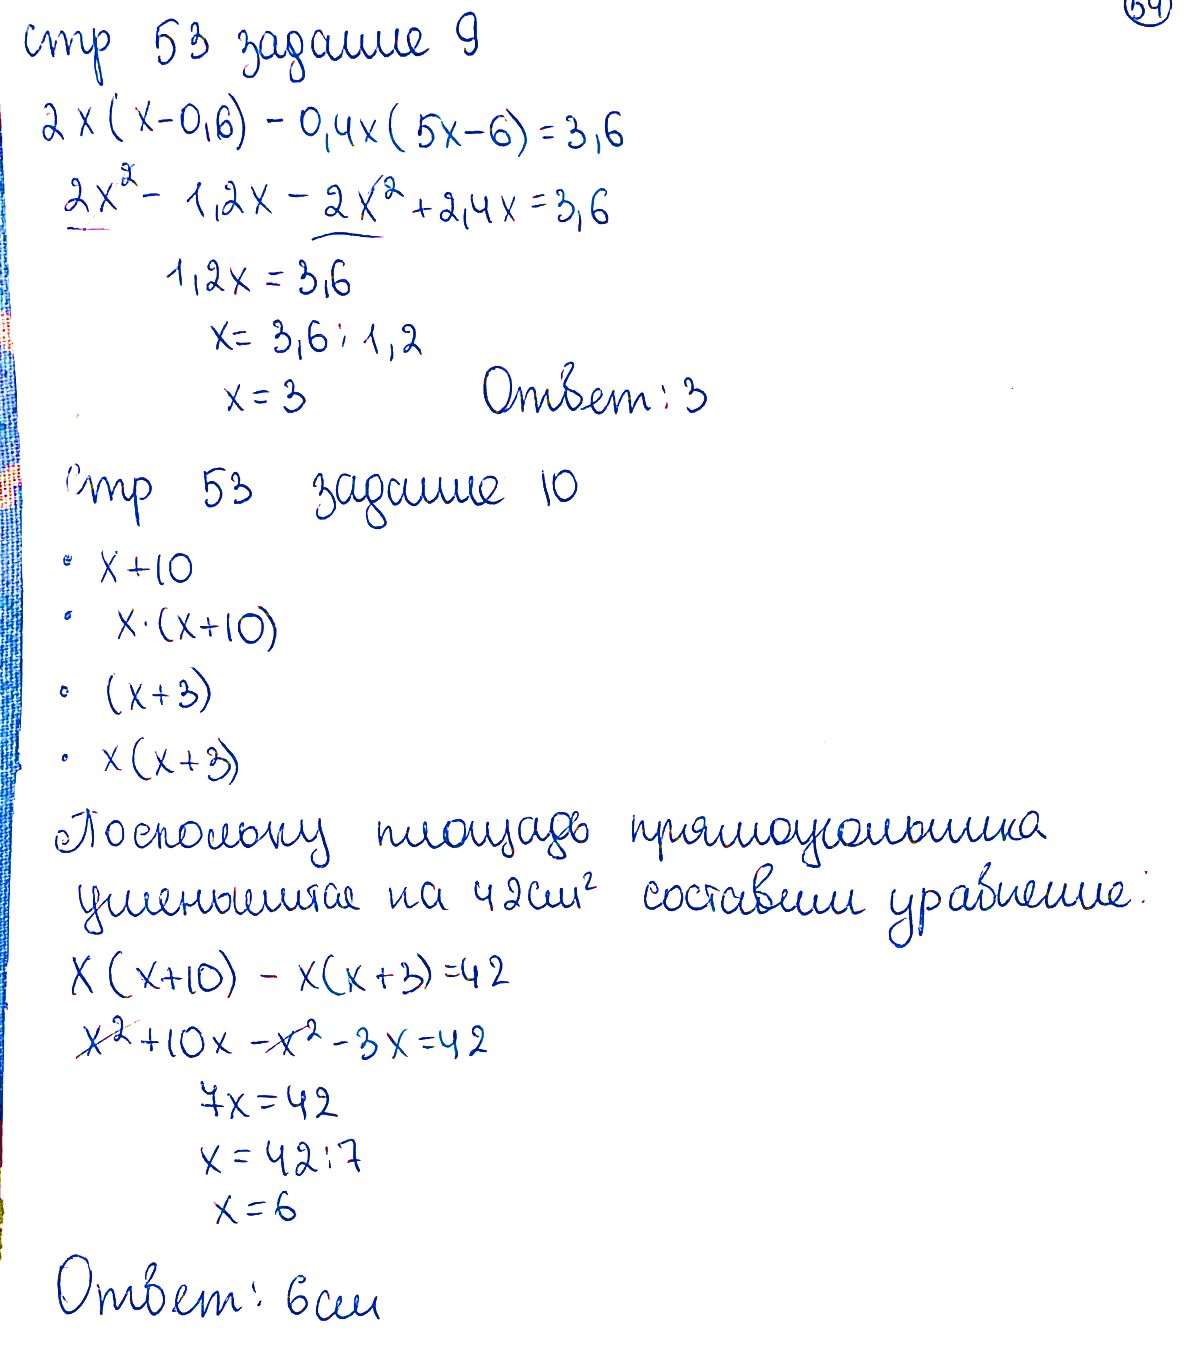 54
стр 53 задание 9
2x(x-0,6) - 0,4x(5x-6)=3,6
2x² - 1,2x - 2x² + 2,4x = 3,6
1,2x = 3,6
x = 3,6 : 1,2
x = 3 Ответ: 3
Стр 53 задание 10
• x+10
• x·(x+10)
• (x+3)
• x(x+3)
Поскольку площадь прямоугольника
уменьшится на 42см² составим уравнение:
x(x+10) - x(x+3)=42
x²+10x-x²-3x=42
7x=42
x=42:7
x=6
Ответ: 6см